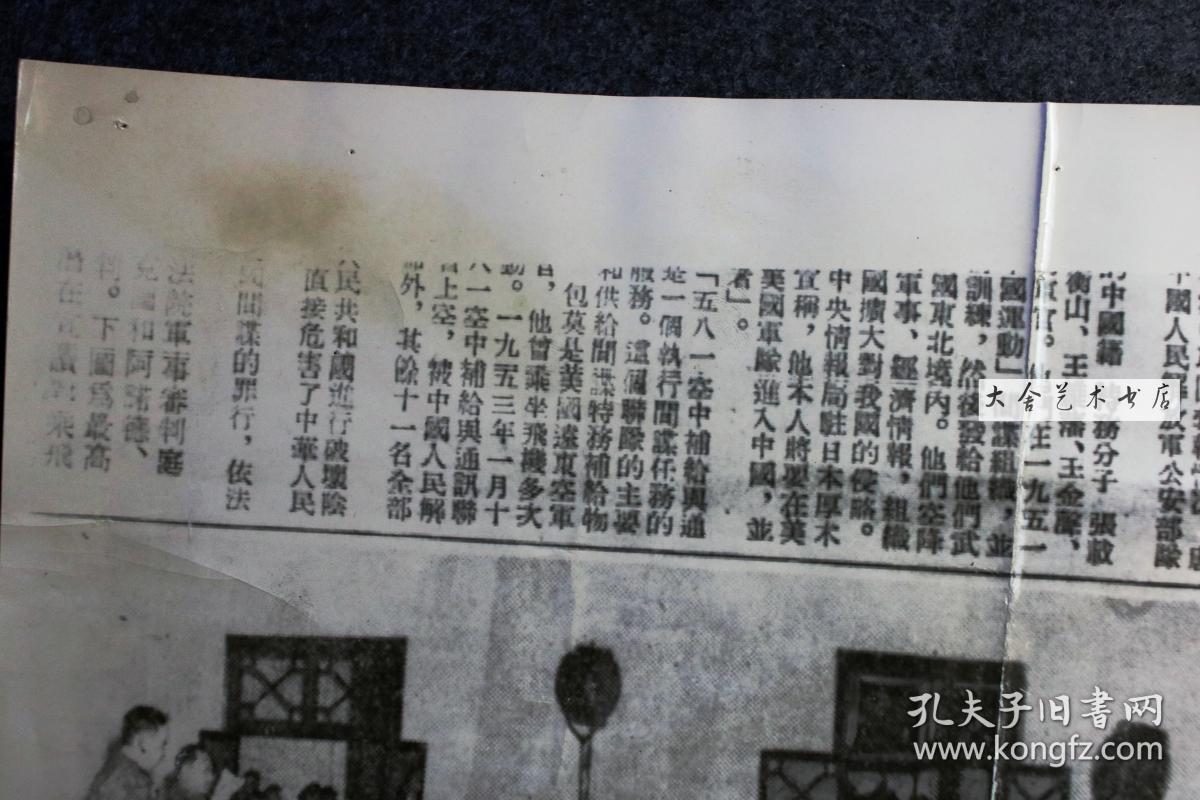 中國人民解放軍公安部隊
的中國籍 特務分子 張載
衡山、王 藩、王金聲,
在一九五一
國運動」 諜組織,並
訓練,然後發給他們武
國東北境內。他們空降
軍事、經濟情報,組織
國擴大對我國的侵略。
中央情報局駐日本厚木
宣稱,他本人將要在美
美國軍隊進入中國,並
者」。
「五八一空中補給與通
是一個執行間諜任務的
服務。這個聯隊的主要
和供給間諜特務補給物
包莫是美國遠東空軍
官,他曾乘坐飛機多次
動。一九五三年一月十
八一空中補給與通訊聯
省上空,被中國人民解
部外,其餘十一名全部
人民共和國進行破壞陰
直接危害了中華人民
民間諜的罪行,依法
法院軍事審判庭
克圖和阿諾德、
判。下圖爲最高
乘飛
大舍艺术书店
孔夫子旧書网
www.kongfz.com